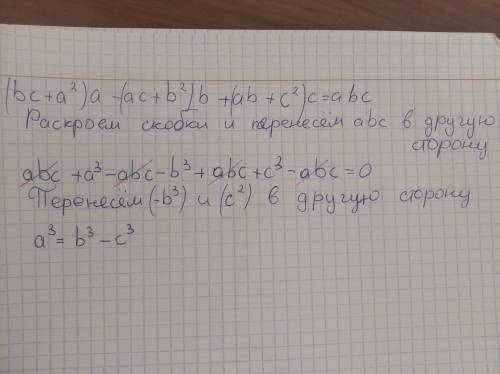 (bc+a²)a-(ac+b²)b+(ab+c²)c=abc
Раскроем скобки и перенесём abc в другую
сторону
abc+a³-abc-b³+abc+c³-abc=0
Перенесём (-b³) и (c²) в другую сторону
a³=b³-c³